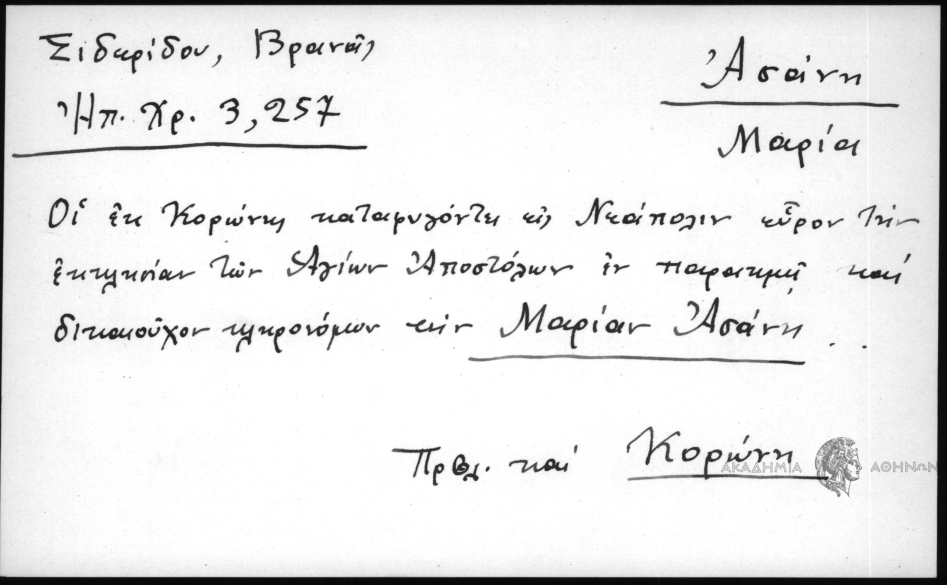 Σιδερίδου, Βρανᾶς
Ἠπ. Χρ. 3, 257
Ἀσάνη
Μαρία
Οἱ ἐκ Κορώνης καταφυγόντες εἰς Νεάπολιν εὗρον τὴν
ἐκκλησίαν τῶν Ἁγίων Ἀποστόλων ἐν παρακμῇ καὶ
δικαιοῦχον κληρονόμων τὴν Μαρίαν Ἀσάνη . .
Πρβλ. καὶ Κορώνη
ΑΚΑΔΗΜΙΑ ΑΘΗΝΩΝ